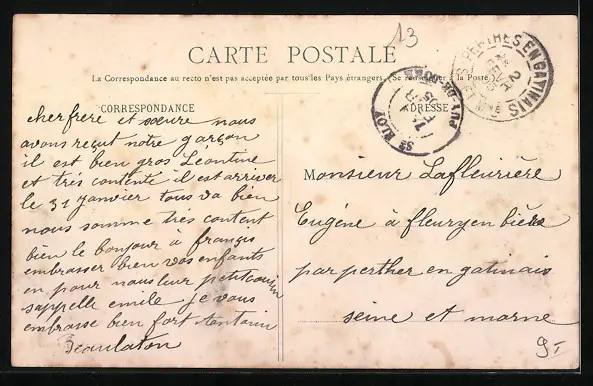 13
CARTE POSTALE
La Correspondance au recto n'est pas acceptée par tous les Pays étrangers. (Se renseigner à la Poste)
CORRESPONDANCE
cher frere et sœure nous
avons reçut notre garçon
il est bien gros Léontine
et trés contente il est arriver
le 31 janvier tous va bien
nous somme tres content
bien le bonjour à françis
embrasser bien vos enfants
en pour nous leur petit cousin
s'appelle emile je vous
embrasse bien fort
Beaulaton
PERTHES EN GATINAIS
ST ELOY
PUY-DE-DOME
ADRESSE
Monsieur Lafleurière
Eugéne à fleury en bière
par perther en gatinais
seine et marne